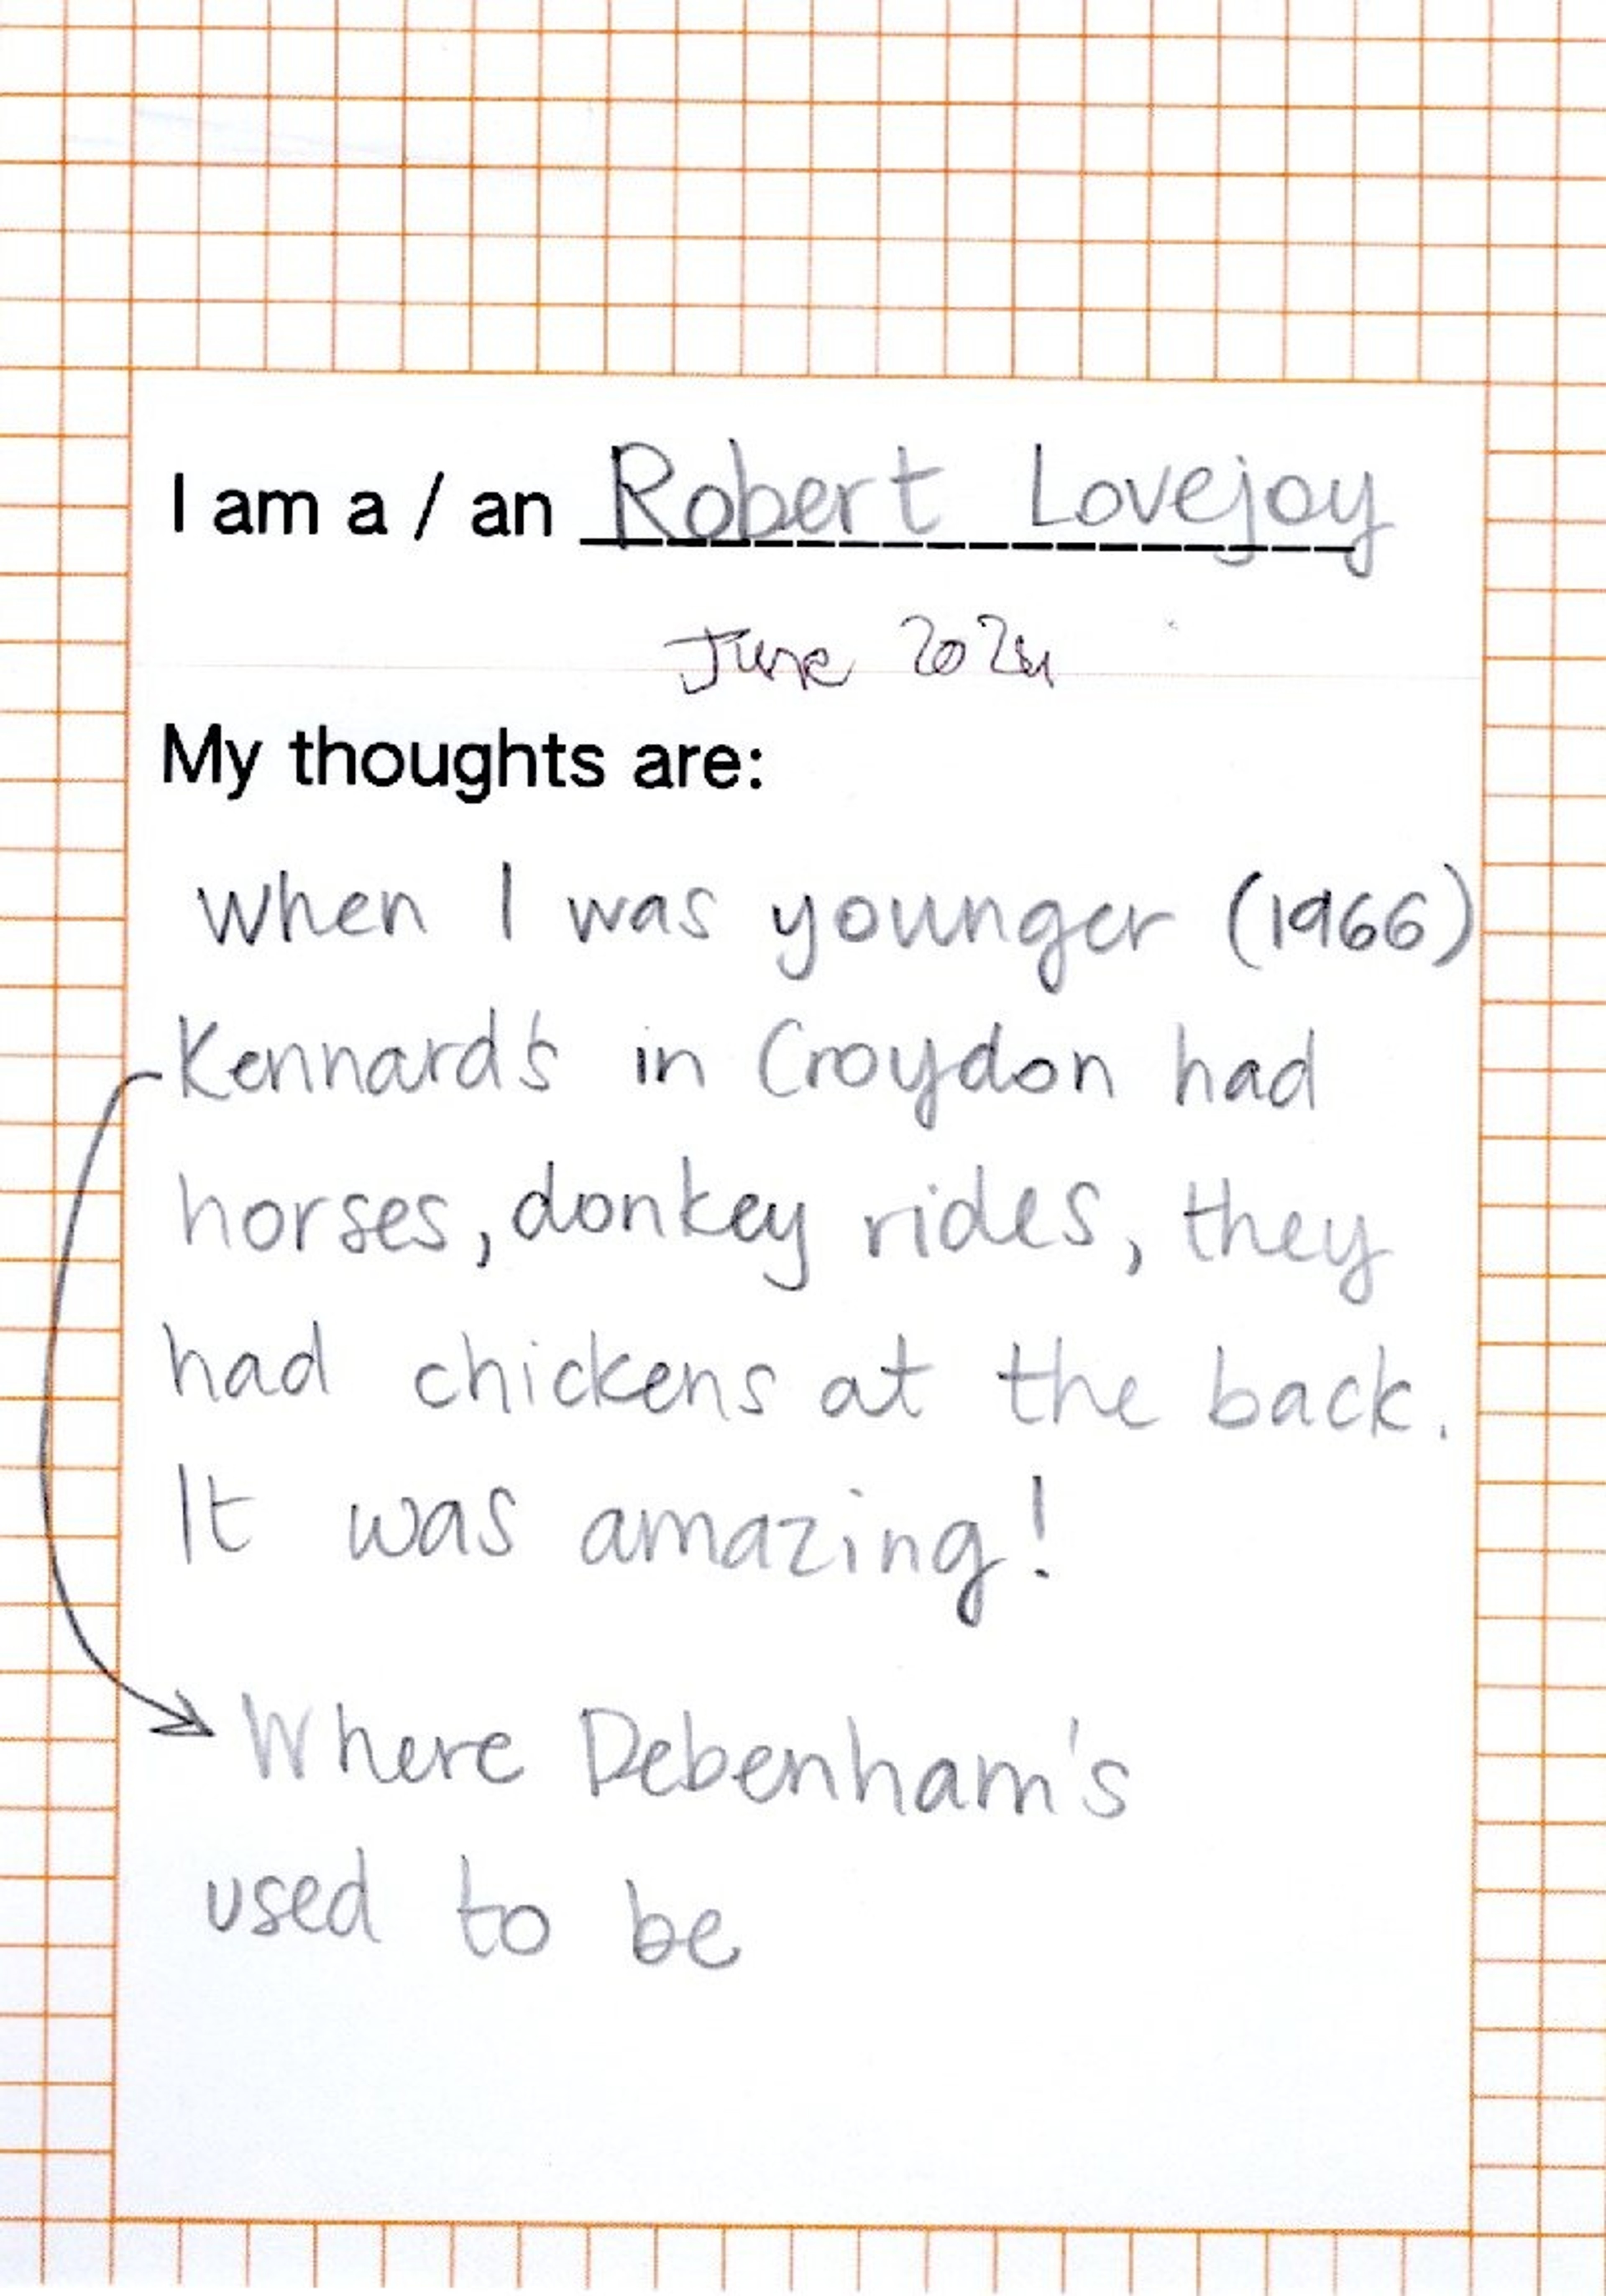 I am a / an Robert Lovejoy
June 2024
My thoughts are:
When I was younger (1966)
Kennard's in Croydon had
horses, donkey rides, they
had chickens at the back.
It was amazing!
Where Debenham's
used to be